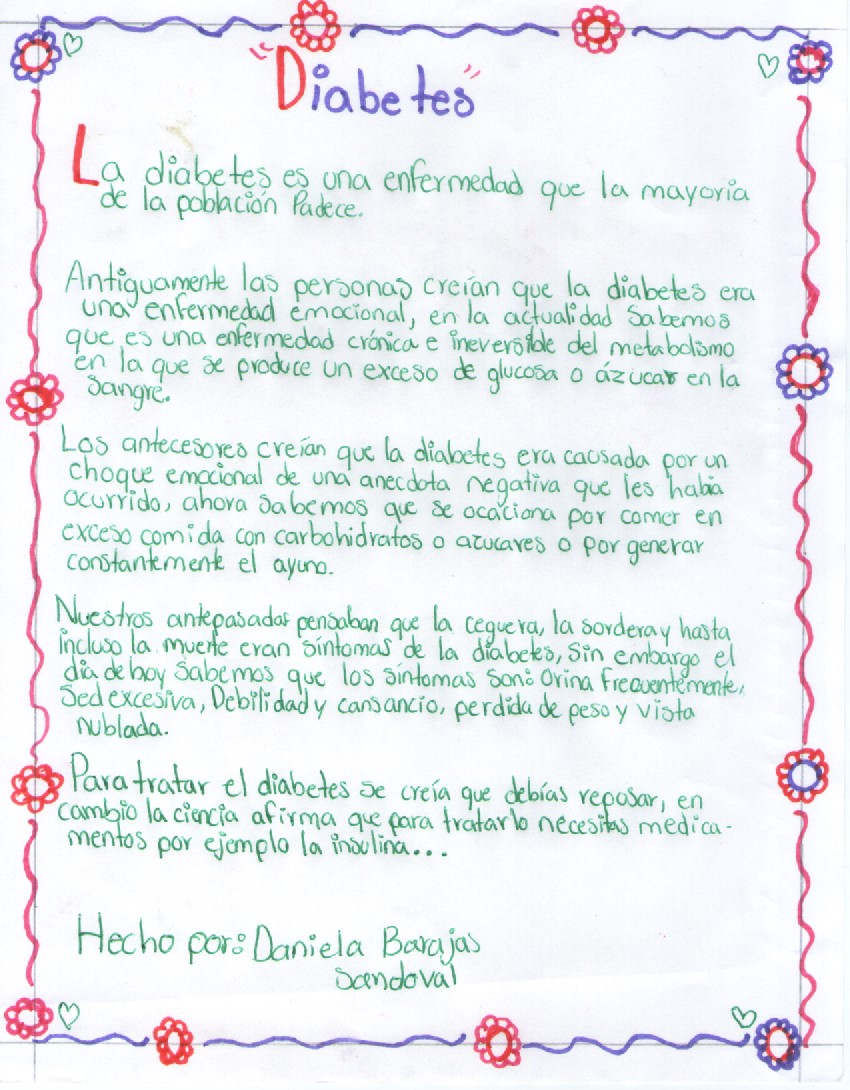 "Diabetes"
La diabetes es una enfermedad que la mayoria
de la población Padece.
Antiguamente las personas creían que la diabetes era
una enfermedad emocional, en la actualidad Sabemos
que es una enfermedad crónica e ineversible del metabolismo
en la que se produce un exceso de glucosa o ázucar en la
Sangre.
Los antecesores creían que la diabetes era causada por un
choque emocional de una anecdota negativa que les había
ocurrido, ahora Sabemos que se ocaciona por comer en
exceso comida con carbohidratos o azucares o por generar
constantemente el ayuno.
Nuestros antepasados pensaban que la ceguera, la sordera y hasta
incluso la muerte eran síntomas de la diabetes, Sin embargo el
día de hoy Sabemos que los síntomas son: Orina frecuentemente,
Sed excesiva, Debilidad y cansancio, perdida de peso y vista
nublada.
Para tratar el diabetes se creía que debías reposar, en
cambio la ciencia afirma que para tratarlo necesitas medica-
mentos por ejemplo la insulina...
Hecho por: Daniela Barajas
Sandoval